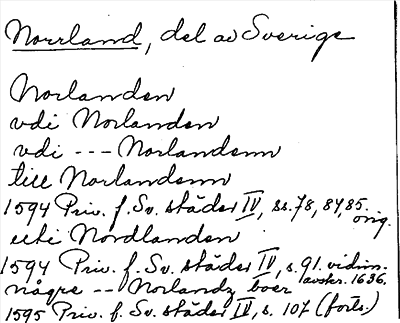 Norrland, del av Sverige
Norlanden
vdi Norlanden
vdi --- Norlandenn
till Norlandenn
1594 Priv. f. Sv. städer IV, ss. 78, 84, 85. orig.
uti Nordlanden
1594 Priv. f. Sv. städer IV, s. 91. vidim. avskr. 1636.
någre -- Norlandz boer
1595 Priv. f. Sv. städer IV, s. 107 (forts.)